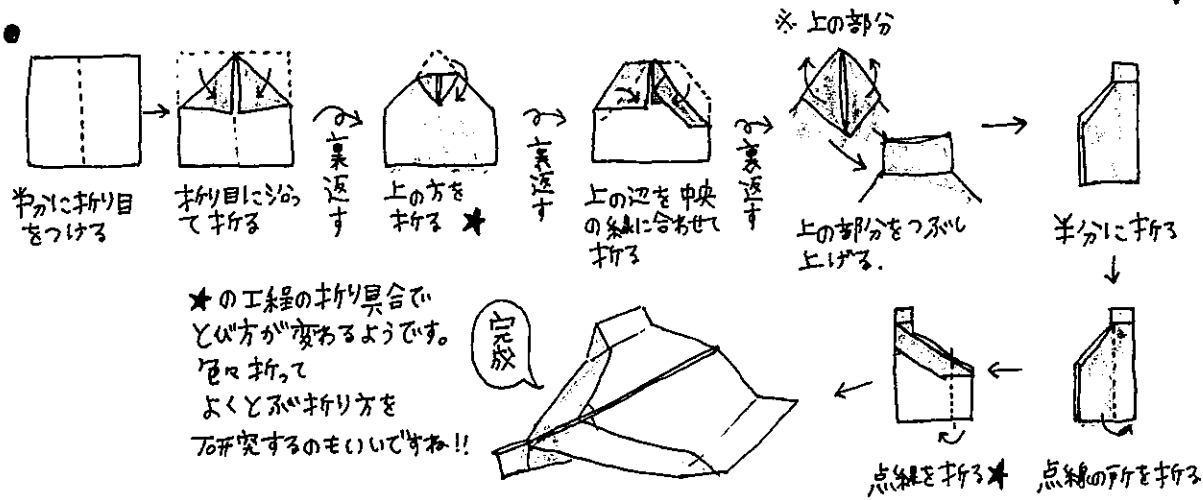 半分に折り目
をつける
折り目に沿っ
て折る
裏返す
上の方を
折る ★
裏返す
上の辺を中央
の線に合わせて
折る
裏返す
※ 上の部分
上の部分をつぶし
上げる.
半分に折る
点線の所を折る
点線を折る★
完成
★の工程の折り具合で
とび方が変わるようです。
色々折って
よくとぶ折り方を
研究するのもいいですね!!